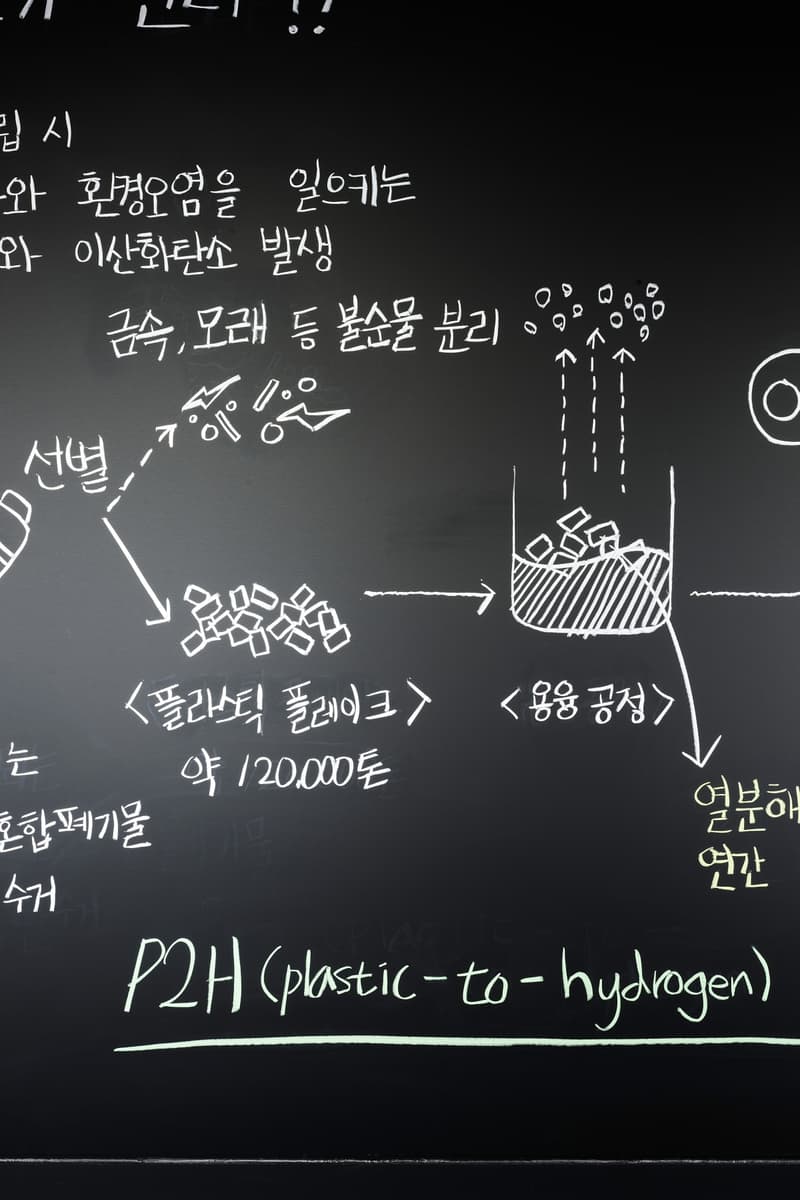 시
환경오염을 일으키는
이산화탄소 발생
금속, 모래 등 불순물 분리
선별
<플라스틱 플레이크>
약 120,000톤
<용융 공정>
는
혼합폐기물
수거
열분해
연간
P2H (plastic-to-hydrogen)